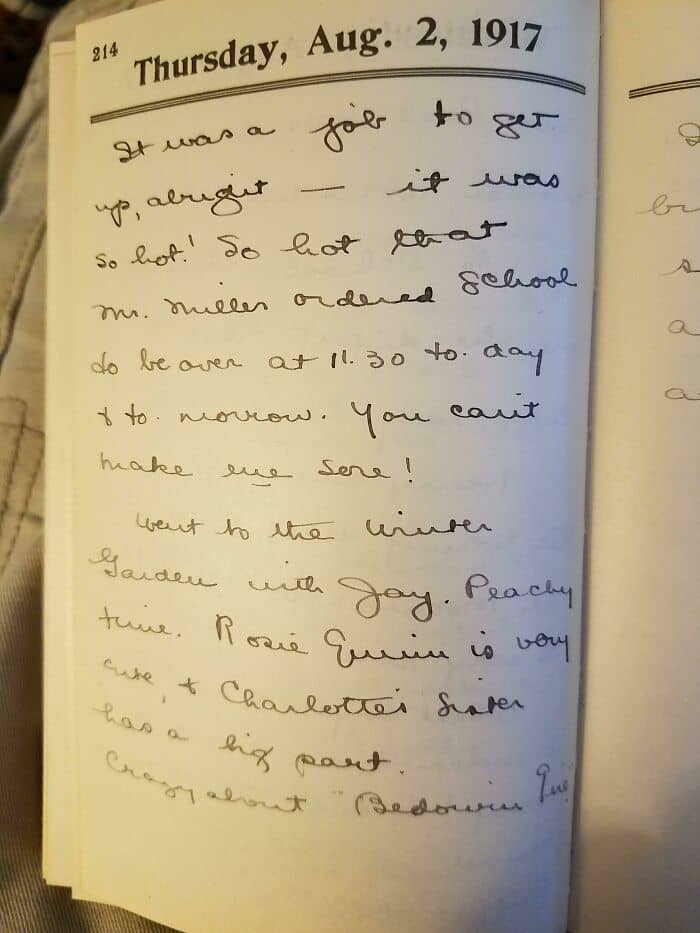 214 Thursday, Aug. 2, 1917
It was a job to get
up, alright — it was
so hot! So hot that
Mr. Miller ordered school
to be over at 11.30 to-day
& to-morrow. You can't
make me sore!
Went to the Winter
Garden with Jay. Peachy
time. Rosie Quinn is very
cute, & Charlotte's sister
has a big part.
Crazy about "Bedouin